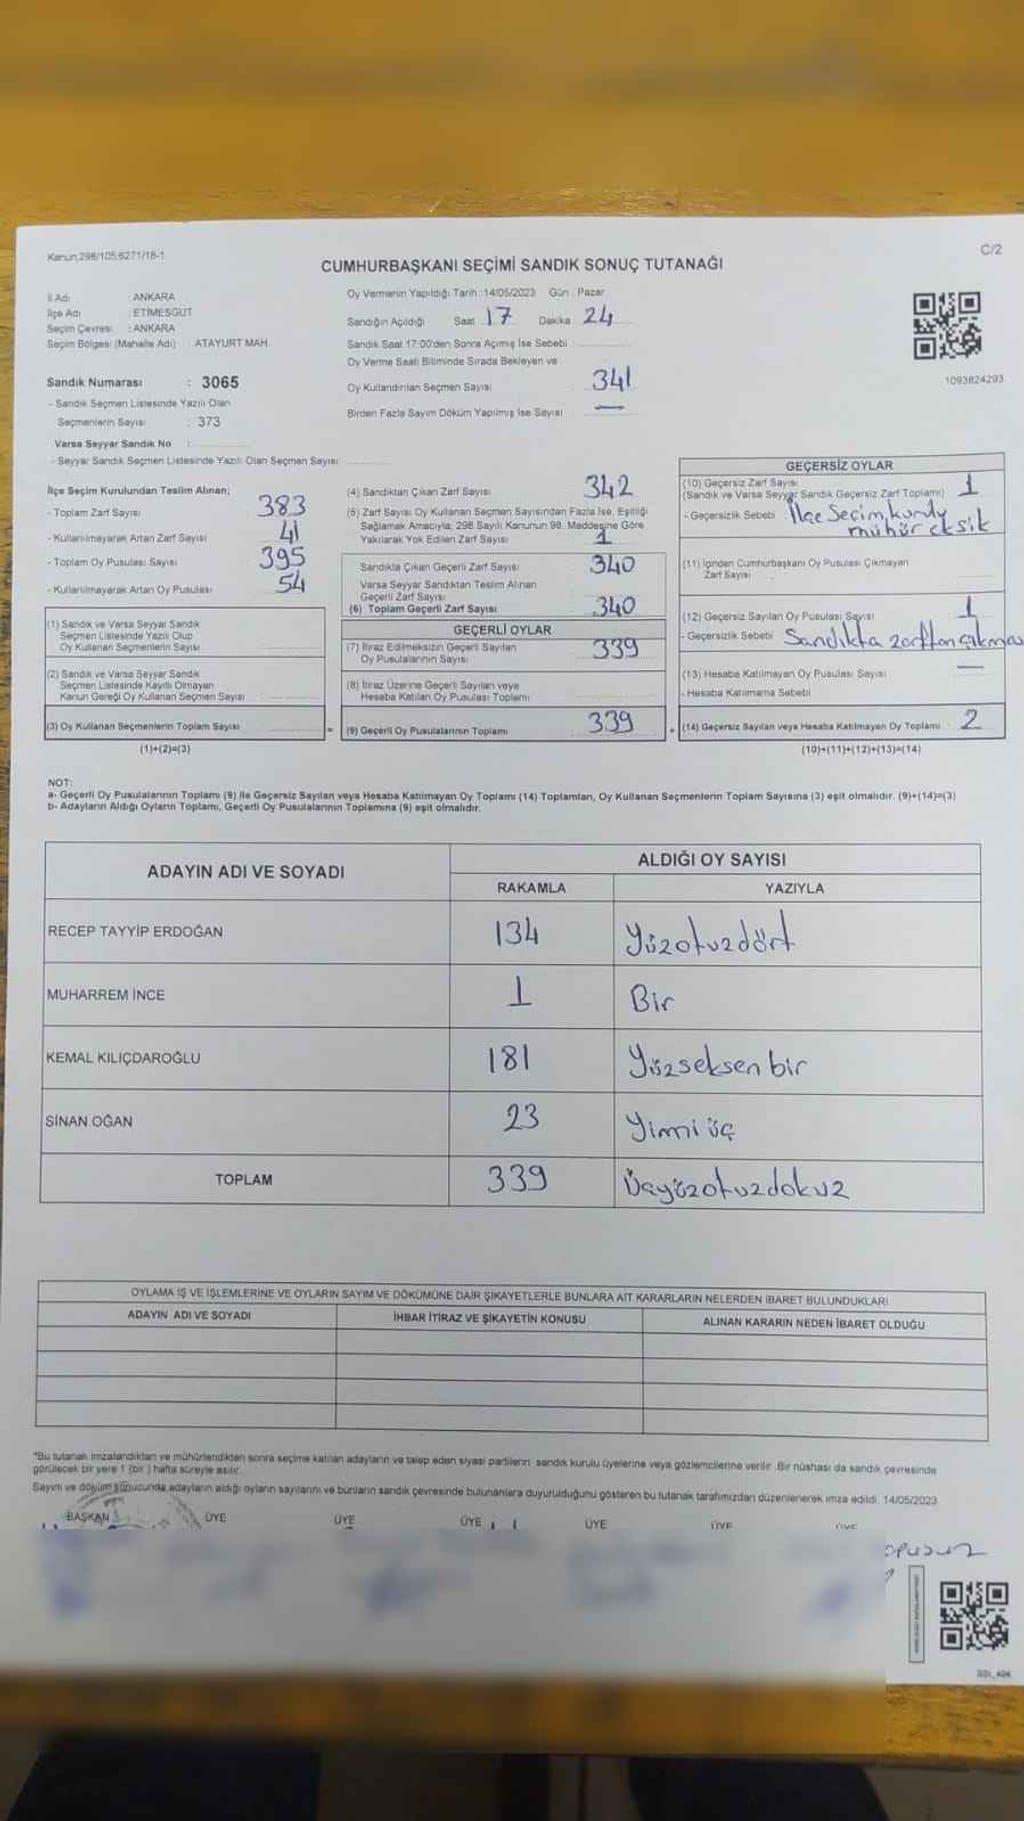 Kanun:298/105;6271/18-1
C/2
CUMHURBAŞKANI SEÇİMİ SANDIK SONUÇ TUTANAĞI
İl Adı : ANKARA
İlçe Adı : ETİMESGUT
Seçim Çevresi : ANKARA
Seçim Bölgesi (Mahalle Adı) : ATAYURT MAH.
Sandık Numarası : 3065
- Sandık Seçmen Listesinde Yazılı Olan
Seçmenlerin Sayısı : 373
Varsa Seyyar Sandık No :
- Seyyar Sandık Seçmen Listesinde Yazılı Olan Seçmen Sayısı
Oy Vermenin Yapıldığı Tarih : 14/05/2023 Gün : Pazar
Sandığın Açıldığı Saat 17 Dakika 24
Sandık Saat 17:00'den Sonra Açımış İse Sebebi :
Oy Verme Saati Bitiminde Sırada Bekleyen ve
Oy Kullandırılan Seçmen Sayısı 341
Birden Fazla Sayım Döküm Yapılmış İse Sayısı —
1093824293
İlçe Seçim Kurulundan Teslim Alınan;
- Toplam Zarf Sayısı 383
- Kullanılmayarak Artan Zarf Sayısı 41
- Toplam Oy Pusulası Sayısı 395
- Kullanılmayarak Artan Oy Pusulası 54
(1) Sandık ve Varsa Seyyar Sandık
Seçmen Listesinde Yazılı Olup
Oy Kullanan Seçmenlerin Sayısı
(2) Sandık ve Varsa Seyyar Sandık
Seçmen Listesinde Kayıtlı Olmayan
Kanun Gereği Oy Kullanan Seçmen Sayısı
(3) Oy Kullanan Seçmenlerin Toplam Sayısı
(1)+(2)=(3)
(4) Sandıktan Çıkan Zarf Sayısı 342
(5) Zarf Sayısı Oy Kullanan Seçmen Sayısından Fazla İse, Eşitliği
Sağlamak Amacıyla, 298 Sayılı Kanunun 98. Maddesine Göre
Yakılarak Yok Edilen Zarf Sayısı 1
Sandıkta Çıkan Geçerli Zarf Sayısı 340
Varsa Seyyar Sandıktan Teslim Alınan
Geçerli Zarf Sayısı
(6) Toplam Geçerli Zarf Sayısı 340
GEÇERLİ OYLAR
(7) İtiraz Edilmeksizin Geçerli Sayılan
Oy Pusulalarının Sayısı 339
(8) İtiraz Üzerine Geçerli Sayılan veya
Hesaba Katılan Oy Pusulası Toplamı
= (9) Geçerli Oy Pusulalarının Toplamı 339
GEÇERSİZ OYLAR
(10) Geçersiz Zarf Sayısı
(Sandık ve Varsa Seyyar Sandık Geçersiz Zarf Toplamı) 1
- Geçersizlik Sebebi İlçe Seçim kurulu
mühür eksik
(11) İçinden Cumhurbaşkanı Oy Pusulası Çıkmayan
Zarf Sayısı
(12) Geçersiz Sayılan Oy Pusulası Sayısı 1
- Geçersizlik Sebebi Sandıkta zarftan çıkması
(13) Hesaba Katılmayan Oy Pusulası Sayısı —
- Hesaba Katılmama Sebebi
+ (14) Geçersiz Sayılan veya Hesaba Katılmayan Oy Toplamı 2
(10)+(11)+(12)+(13)=(14)
NOT:
a- Geçerli Oy Pusulalarının Toplamı (9) ile Geçersiz Sayılan veya Hesaba Katılmayan Oy Toplamı (14) Toplamları, Oy Kullanan Seçmenlerin Toplam Sayısına (3) eşit olmalıdır. (9)+(14)=(3)
b- Adayların Aldığı Oyların Toplamı, Geçerli Oy Pusulalarının Toplamına (9) eşit olmalıdır.
ADAYIN ADI VE SOYADI ALDIĞI OY SAYISI
RAKAMLA YAZIYLA
RECEP TAYYİP ERDOĞAN 134 Yüzotuzdört
MUHARREM İNCE 1 Bir
KEMAL KILIÇDAROĞLU 181 Yüzseksen bir
SİNAN OĞAN 23 Yirmi üç
TOPLAM 339 Üçyüzotuzdokuz
OYLAMA İŞ VE İŞLEMLERİNE VE OYLARIN SAYIM VE DÖKÜMÜNE DAİR ŞİKAYETLERLE BUNLARA AİT KARARLARIN NELERDEN İBARET BULUNDUKLARI
ADAYIN ADI VE SOYADI İHBAR İTİRAZ VE ŞİKAYETİN KONUSU ALINAN KARARIN NEDEN İBARET OLDUĞU
*Bu tutanak imzalandıktan ve mühürlendikten sonra seçime katılan adayların ve talep eden siyasi partilerin sandık kurulu üyelerine veya gözlemcilerine verilir. Bir nüshası da sandık çevresinde
görülecek bir yere 1 (bir) hafta süreyle asılır.
Sayım ve döküm sonucunda adayların aldığı oyların sayılarını ve bunların sandık çevresinde bulunanlara duyurulduğunu gösteren bu tutanak tarafımızdan düzenlenerek imza edildi. 14/05/2023
BAŞKAN ÜYE ÜYE ÜYE ÜYE ÜYE ÜYE